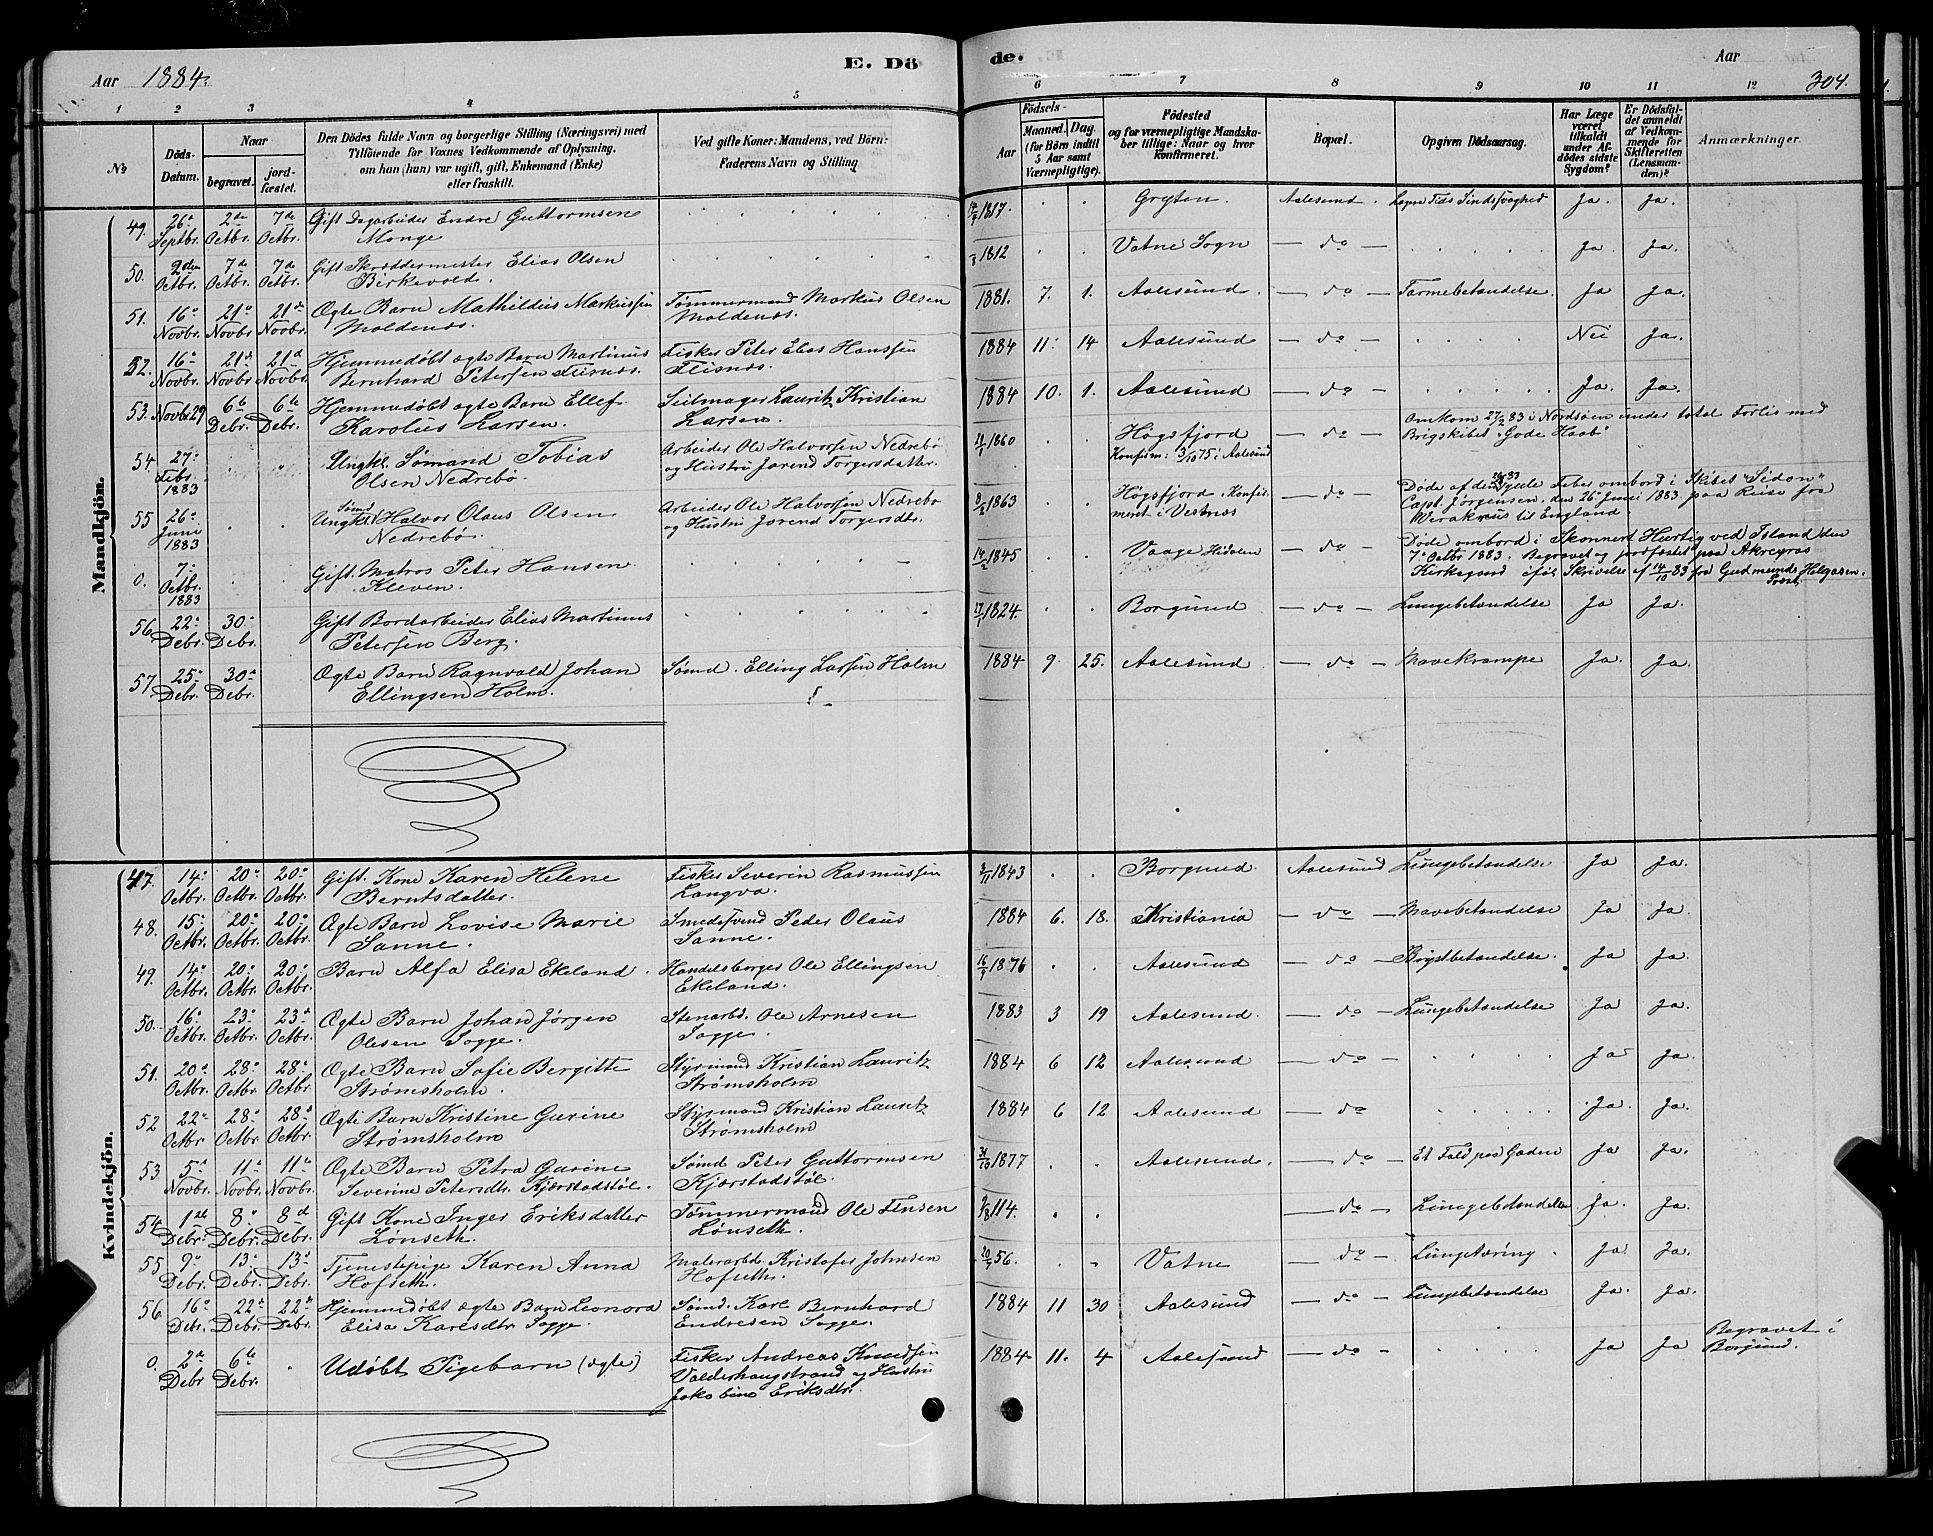 Aar 1884.
E. Dö
de.
Aar
304.
1 2 3 4 5 6 7 8 9 10 11 12
No
Döds-Datum.
Naar
begravet.
jordfæstet.
Den Dödes fulde Navn og borgerlige Stilling (Næringsvei) med
Tilföiende for Voxnes Vedkommende af Oplysning,
om han (hun) var ugift, gift, Enkemand (Enke)
eller fraskilt.
Ved gifte Koner: Mandens, ved Börn:
Faderens Navn og Stilling
Födsels-
Aar
Maaned. Dag.
(for Börn indtil
5 Aar samt
Værnepligtige).
Födested
og for værnepligtige Mandska-
ber tillige: Naar og hvor
konfirmeret.
Bopæl.
Opgiven Dödsaarsag.
Har Læge
været
tilkaldt
under Af-
dödes sidste
Sygdom?
Er Dödsfal-
det anmeldt
af Vedkom-
mende for
Skifteretten
(Lensman-
den)?
Anmærkninger.
Mandkjön.
49. 26de Septbr. 2den Octbr. 7de Octbr. Gift Dagarbeider Endre Guttormsen
Monge
1817. Gryten. Aalesund. Sindssvaghed Ja. Ja.
50. 2den Octbr. 7de Octbr. 7de Octbr. Gift Skræddermester Elias Olsen
Birkevold.
1812 Vatne Sogn — do — Ja Ja.
51. 16de Novbr. 21de Novbr. 21de Novbr. Ægte Barn Mathildius Markussen
Moldenæs.
Tømmermand Markus Olsen
Moldenæs.
1881. 7. 1. Aalesund. — do — Tarmebetændelse. Ja Ja.
52. 16de Novbr. 21de Novbr. 21de Novbr. Hjemmedøbt ægte Barn Martinus
Bernhard Petersen Flisnæs.
Fisker Peter Elias Hanssen
Flisnæs.
1884 11. 14 Aalesund — do — Nei Ja.
53. Novbr 29 6te Debr. 6te Debr. Hjemmedøbt ægte Barn Ellef
Karolius Larsen.
Seilmager Lauritz Kristian
Larsen.
1884 10. 1. Aalesund — do — Ja. Ja.
54. 27de Febr. 1883 Ungkl. Sømand Tobias
Olsen Nedrebø.
Arbeider Ole Halvorsen Nedrebø
og Hustru Jorend Torgersdatter.
1860 Høgsfjord
Konfirm: 3/10 75 i Aalesund
— do —
Omkom 27/2 83 i Nordsøen under total Forlis med
Brigskibet "Gode Haab"
55 26de Juni 1883 Ungkl. Sømd Halvor Olaus Olsen
Nedrebø.
Arbeider Ole Halvorsen Nedrebø
og Hustru Jorend Torgersdtr.
8/2 1863 Høgsfjord. Konfir-
ment i Vestnæs
— do —
Døde af den gule Feber ombord i Skibet "Sidon"
Capt. Jørgensen, den 26de Juni 1883 paa Reise fra
Werakrus til England.
0. 7de Octbr. 1883 Gift. Matros Peter Hansen
Kleven.
1845 Vaage — do —
Døde ombord i Skonnert Hurtig ved Island den
7de Octbr 1883. Begravet og jordfæstet paa Akreyras
Kirkegaard ifølg Skrivelse af 14/10 83 fra Gudmund Helgasen.
Præst.
56. 22de Debr. 30de Debr. Gift Bordarbeider Elias Martinus
Petersen Berg.
1824. Borgund — do — Lungebetændelse Ja Ja.
57 25de Debr. 30de Debr. Ægte Barn Ragnvald Johan
Ellingsen Holm.
Sømd. Elling Larsen Holm
1884 9. 25. Aalesund — do — Mavekrampe Ja. Ja.
Kvindekjön.
47. 14de Octbr. 20de Octbr. 20de Octbr. Gift. Kone Karen Helene
Berntsdatter.
Fisker Severin Rasmussen
Langva.
3/11 1843 Borgund. Aalesund Lungebetændelse Ja Ja.
48. 15de Octbr. 20de Octbr. 20de Octbr. Ægte Barn Lovise Marie
Sanne.
Smedesvend Peder Olaus
Sanne.
1884 6. 18. Kristiania — do — Mavebetændelse Ja Ja.
49. 14de Octbr. 20de Octbr. 20de Octbr. Barn Alfa Elisa Ekeland.
Handelsborger Ole Ellingsen
Ekeland.
1876 Aalesund — do — Brystbetændelse. Ja Ja.
50. 16de Octbr. 23de Octbr. 23de Octbr. Ægte Barn Johan Jørgen
Olesen Sogge.
Stenarbd. Ole Arnesen
Sogge.
1883 3 19 Aalesund. — do — Lungebetændelse Ja Ja.
51. 20de Octbr. 28de Octbr. 28de Octbr. Ægte Barn Sofie Bergitte
Strømsholm.
Styrmand Kristian Lauritz
Strømsholm
1884 6 12 Aalesund — do — Ja Ja.
52 22de Octbr. 28de Octbr. 28de Octbr. Ægte Barn Kristine Gurine
Strømsholm
Styrmand Kristian Lauritz
Strømsholm
1884 6 12 Aalesund — do Ja. Ja.
53 5te Novbr. 11te Novbr. 11te Novbr. Ægte Barn Petra Gurine
Severine Petersdtr. Kjærstadstøl.
Sømd Peter Guttormsen
Kjærstadstøl.
1877 Aalesund. — do — Et Fald paa Gaden Ja Ja.
54. 1ste Debr. 8de Debr. 8de Debr. Gift Kone Inger Eriksdatter
Lønseth.
Tømmermand Ole Finsen
Lønseth.
114. — do — Lungebetændelse Ja. Ja.
55 9de Debr. 13de Debr. 13de Debr. Tjenestepige Karen Anna
Hofseth.
Malerarbd. Kristofer Johnsen
Hofseth.
56. Vatne — do — Lungetæring. Ja Ja.
56. 16de Debr. 22de Debr. 22de Debr. Hjemmedøbt ægte Barn Leonora
Elisa Karlsdtr Sogge.
Sømd. Karl Bernhard
Endresen Sogge.
1884 11 30 Aalesund — do — Lungebetændelse Ja. Ja.
0. 2de Debr 6te Debr. Udøbt Pigebarn (ægte)
Fisker Andreas Knudsen
Valderhaugstrand og Hustru
Jakobine Eriksdtr.
1884 11. 4 Aalesund — do — Ja Ja
Begravet i
Borgund.